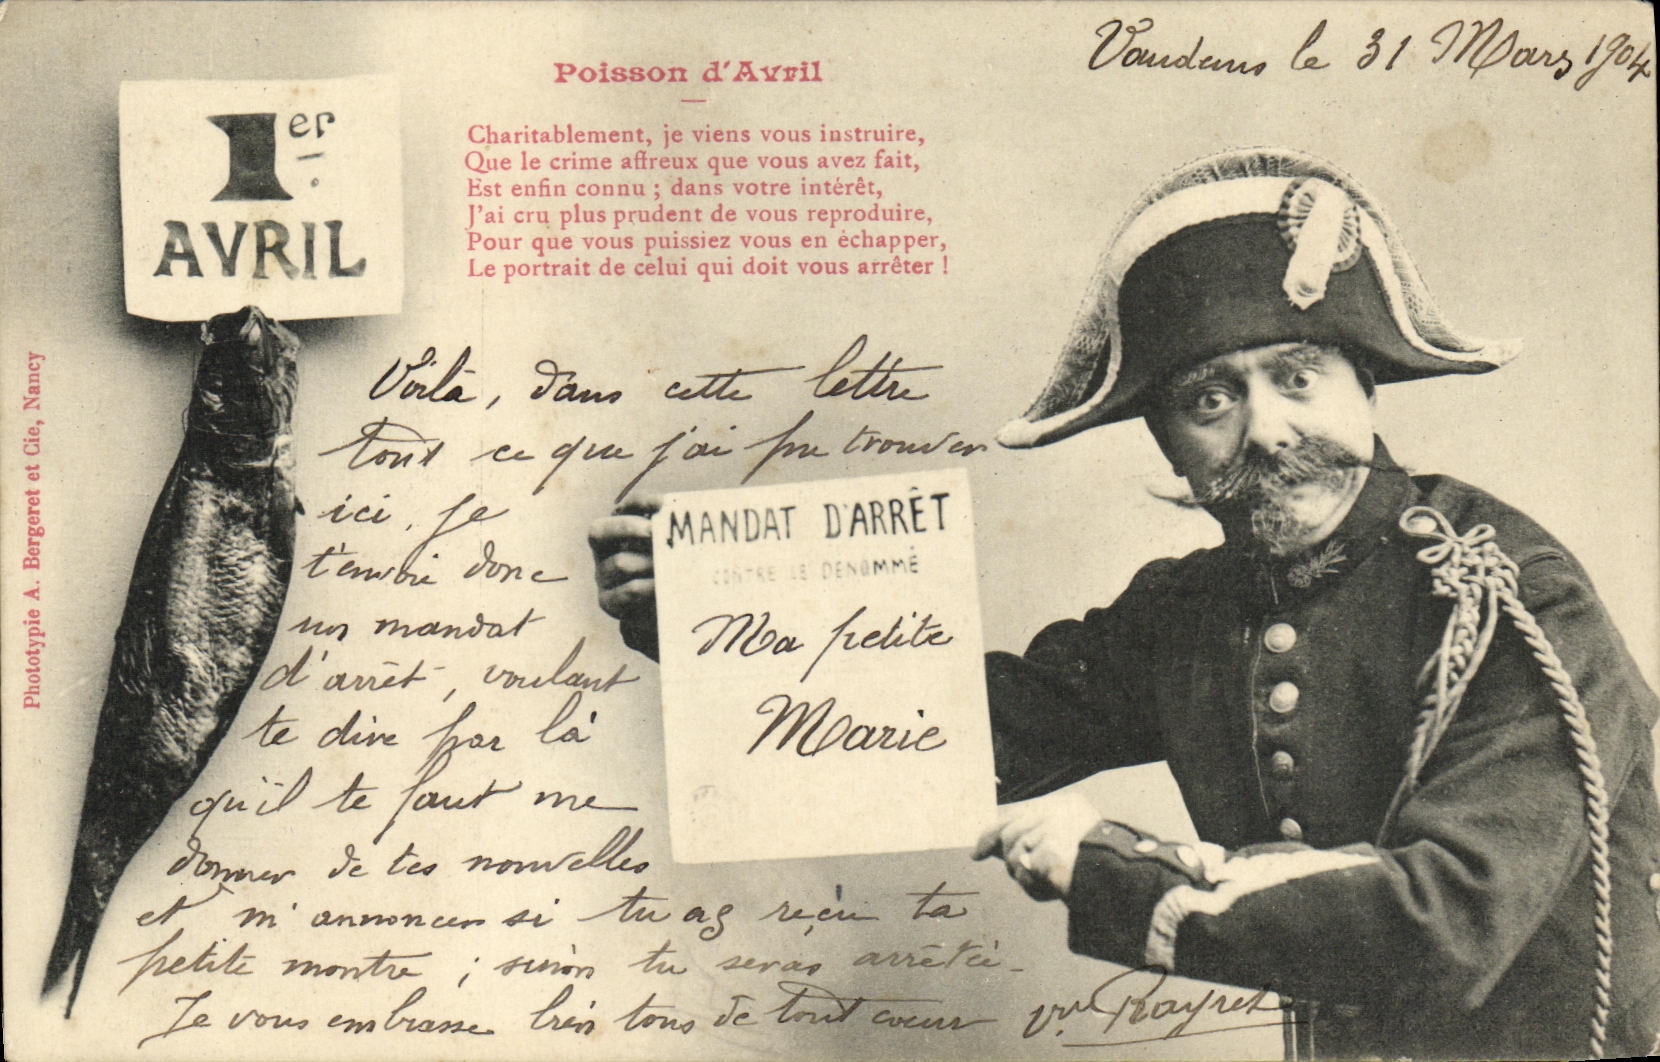 Vaudens le 31 Mars 1904
Poisson d'Avril
1er
AVRIL
Charitablement, je viens vous instruire,
Que le crime affreux que vous avez fait,
Est enfin connu ; dans votre intérêt,
J'ai cru plus prudent de vous reproduire,
Pour que vous puissiez vous en échapper,
Le portrait de celui qui doit vous arrêter !
Phototypie A. Bergeret et Cie, Nancy
Voilà, dans cette lettre
tout ce que j'ai pu trouver
ici. Je
t'envoie donc
un mandat
d'arrêt, voulant
te dire par là
qu'il te faut me
donner de tes nouvelles
et m'annoncer si tu as reçu ta
petite montre ; sinon tu seras arrêtée.
Je vous embrasse bien tous de tout coeur
MANDAT D'ARRÊT
CONTRE LE DENOMMÉ
Ma petite
Marie